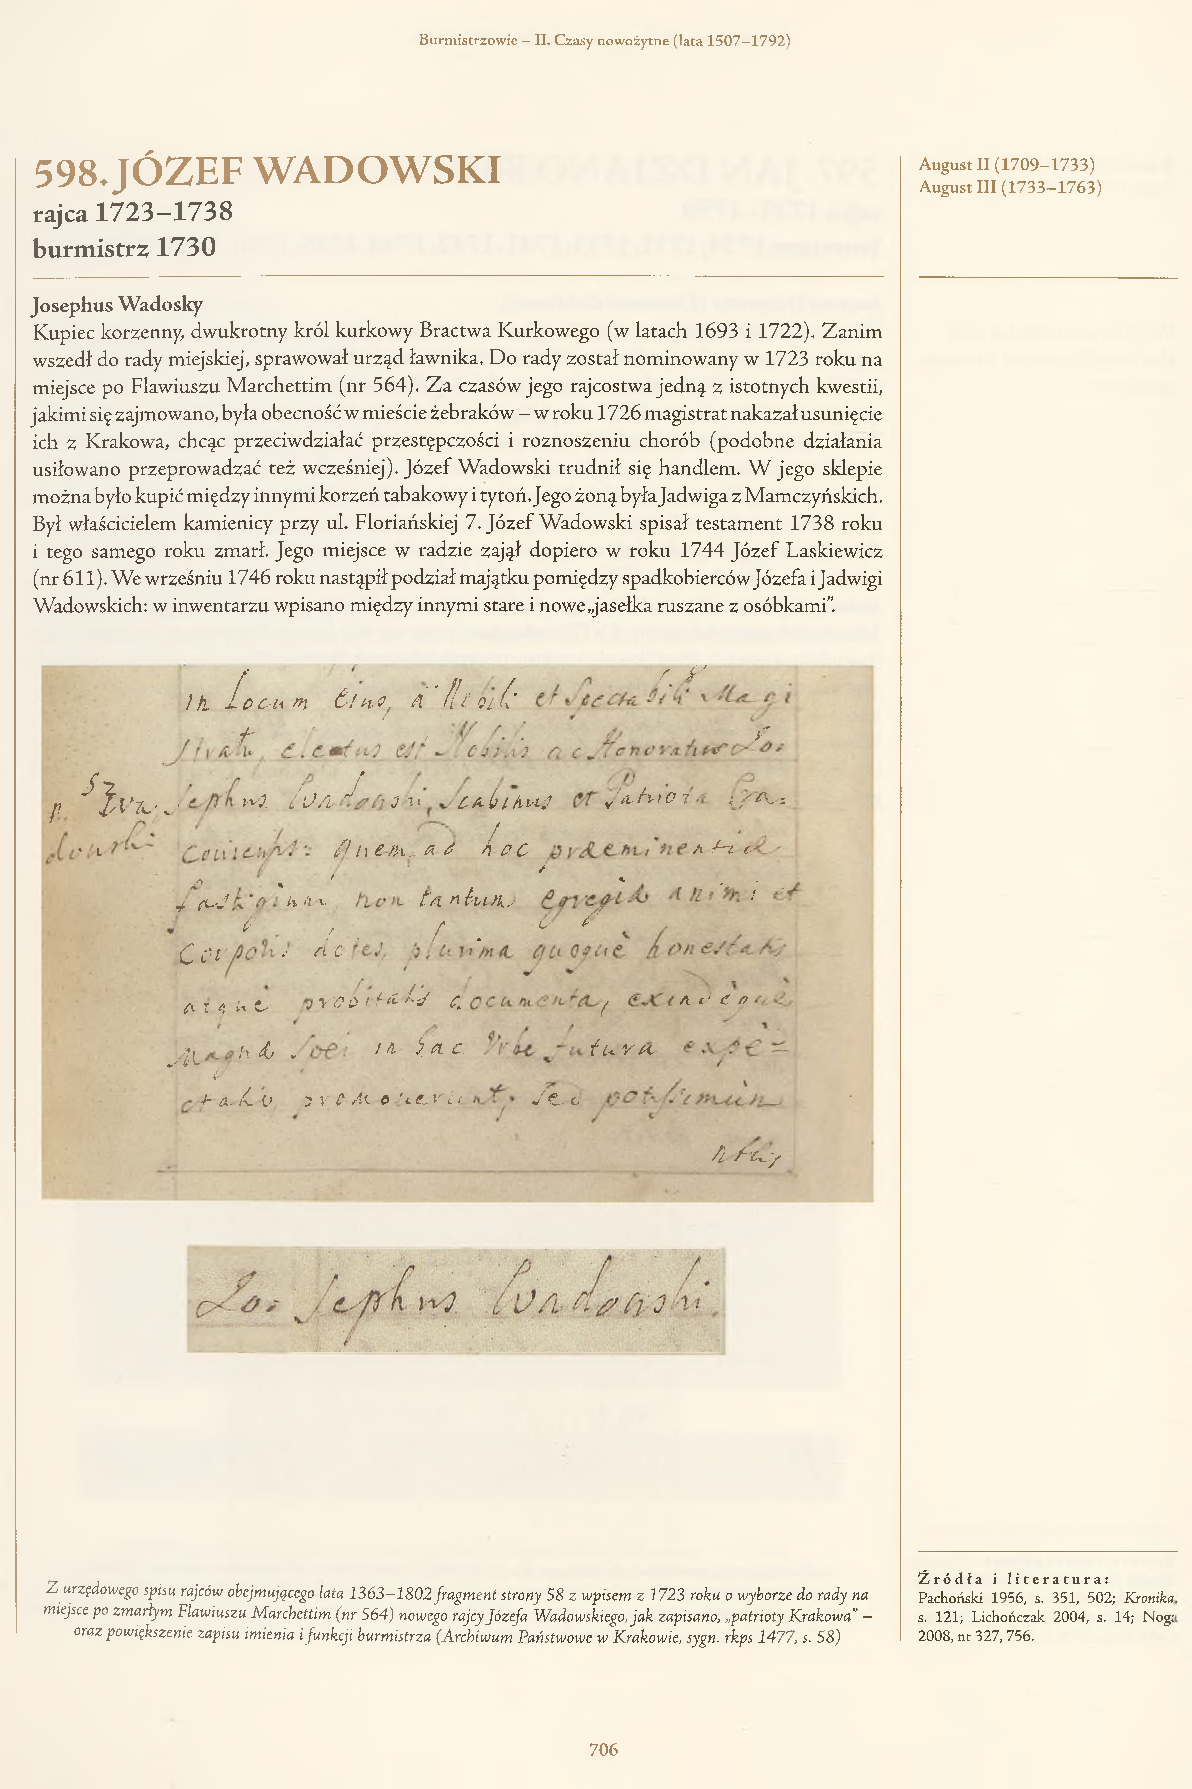 Burmistrzowie – II. Czasy nowożytne (lata 1507–1792)
598. JÓZEF WADOWSKI
rajca 1723–1738
burmistrz 1730
August II (1709–1733)
August III (1733–1763)
Josephus Wadosky
Kupiec korzenny, dwukrotny król kurkowy Bractwa Kurkowego (w latach 1693 i 1722). Zanim
wszedł do rady miejskiej, sprawował urząd ławnika. Do rady został nominowany w 1723 roku na
miejsce po Flawiuszu Marchettim (nr 564). Za czasów jego rajcostwa jedną z istotnych kwestii,
jakimi się zajmowano, była obecność w mieście żebraków – w roku 1726 magistrat nakazał usunięcie
ich z Krakowa, chcąc przeciwdziałać przestępczości i roznoszeniu chorób (podobne działania
usiłowano przeprowadzać też wcześniej). Józef Wadowski trudnił się handlem. W jego sklepie
można było kupić między innymi korzeń tabakowy i tytoń. Jego żoną była Jadwiga z Mamczyńskich.
Był właścicielem kamienicy przy ul. Floriańskiej 7. Józef Wadowski spisał testament 1738 roku
i tego samego roku zmarł. Jego miejsce w radzie zajął dopiero w roku 1744 Józef Laskiewicz
(nr 611). We wrześniu 1746 roku nastąpił podział majątku pomiędzy spadkobierców Józefa i Jadwigi
Wadowskich: w inwentarzu wpisano między innymi stare i nowe „jasełka ruszane z osóbkami”.
in Locum Eius, à Nobili et Spectabili Magi
stratu, electus est Nobilis ac Honoratus Jo=
sephus Wadowski, Scabinus et Patriota Cra=
coviensis: quem, ad hoc præeminentiæ
fastigium non tantum egregiæ animi et
Corporis dotes, plurima quoquè honestatis
atquè probitatis documenta, exindèquè
Magnæ Spei in hac Urbe futura expe=
ctatio promoverunt, sed potissimùm
Jo= sephus Wadowski.
Z urzędowego spisu rajców obejmującego lata 1363–1802 fragment strony 58 z wpisem z 1723 roku o wyborze do rady na
miejsce po zmarłym Flawiuszu Marchettim (nr 564) nowego rajcy Józefa Wadowskiego, jak zapisano, „patrioty Krakowa” –
oraz powiększenie zapisu imienia i funkcji burmistrza (Archiwum Państwowe w Krakowie, sygn. rkps 1477, s. 58)
Źródła i literatura:
Pachoński 1956, s. 351, 502; Kronika,
s. 121; Lichończak 2004, s. 14; Noga
2008, nr 327, 756.
706